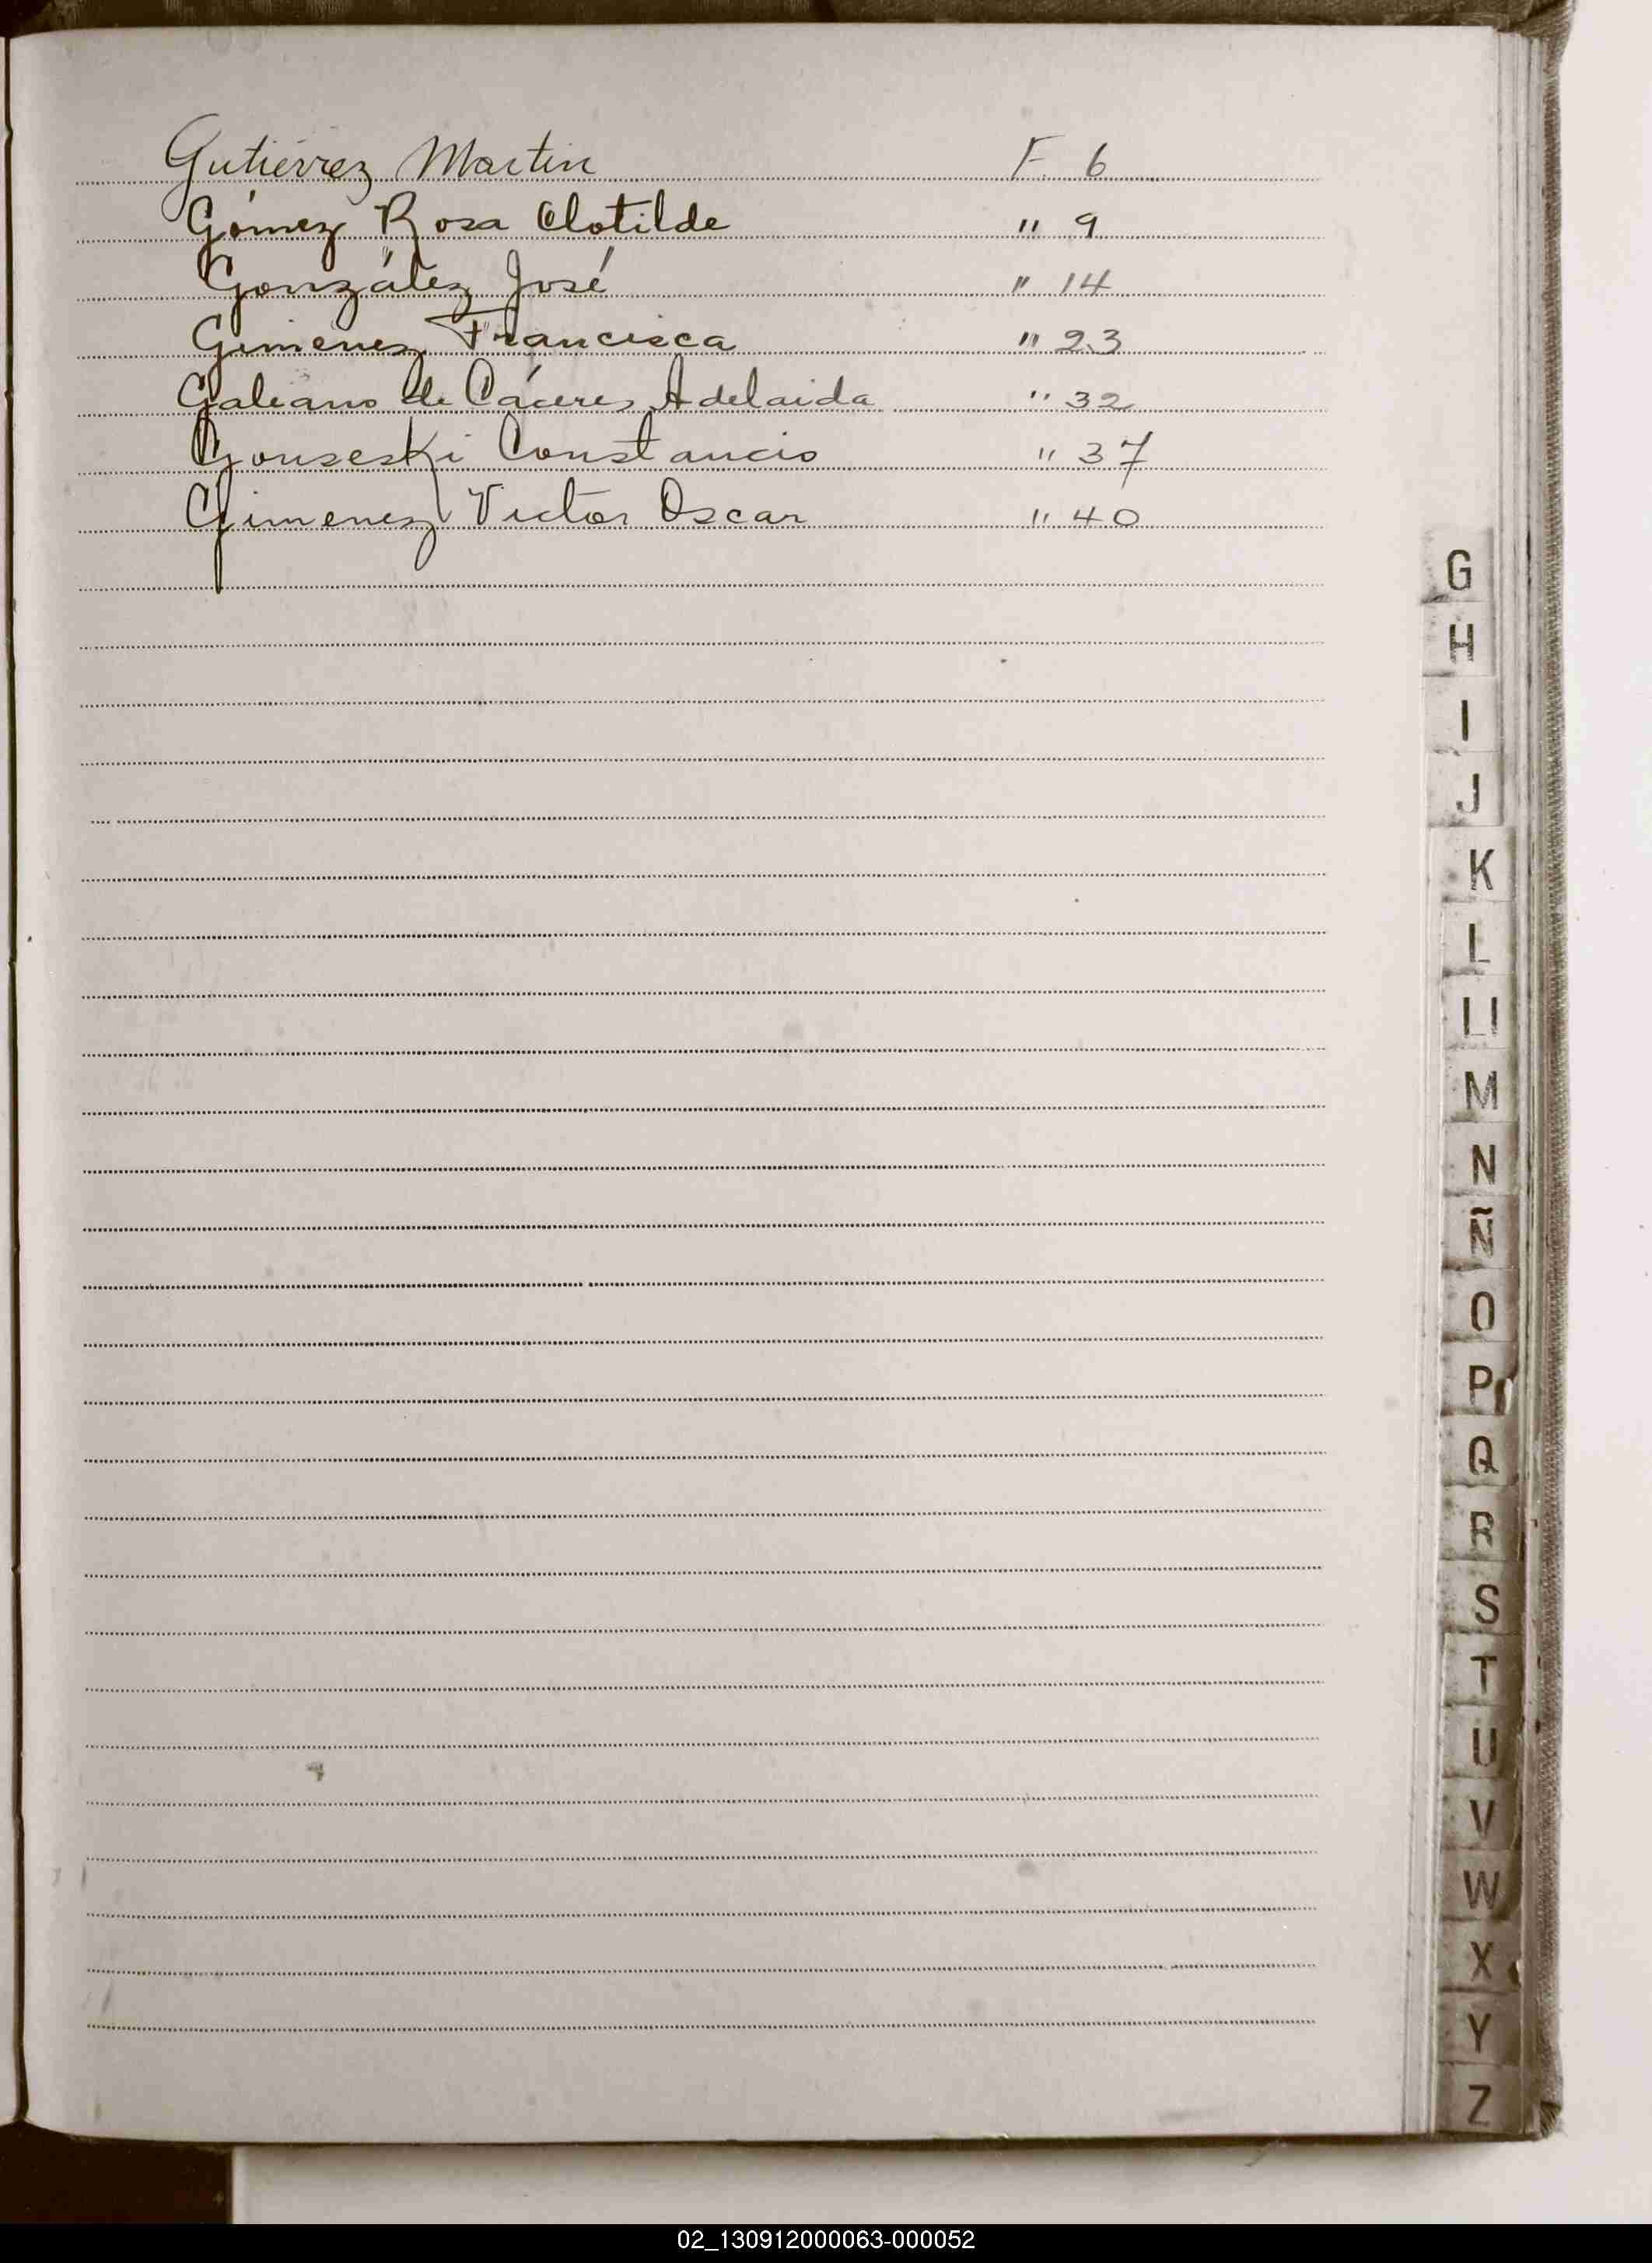 Gutiérrez Martin F. 6
Gómez Rosa Clotilde " 9
González José " 14
Gimenez Francisca " 23
Galeano de Cáceres Adelaida " 32
Gouseski Constancio " 37
Gimenez Victor Oscar " 40
G
H
I
J
K
L
Ll
M
N
Ñ
O
P
Q
R
S
T
U
V
W
X
Y
Z
02_130912000063-000052